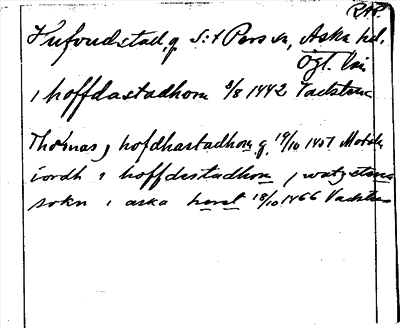 RAP.
Hufvudstad, g S:t Pers sn, Aska hd.
Ögl. län
i hoffdastadhom 3/8 1442 Vadstena
Thomas j hofdhastadhom g. 19/10 1451 Motala
iordh i hoffdestadhom j watzstena
sokn i aska heret 18/10 1466 Vadstena